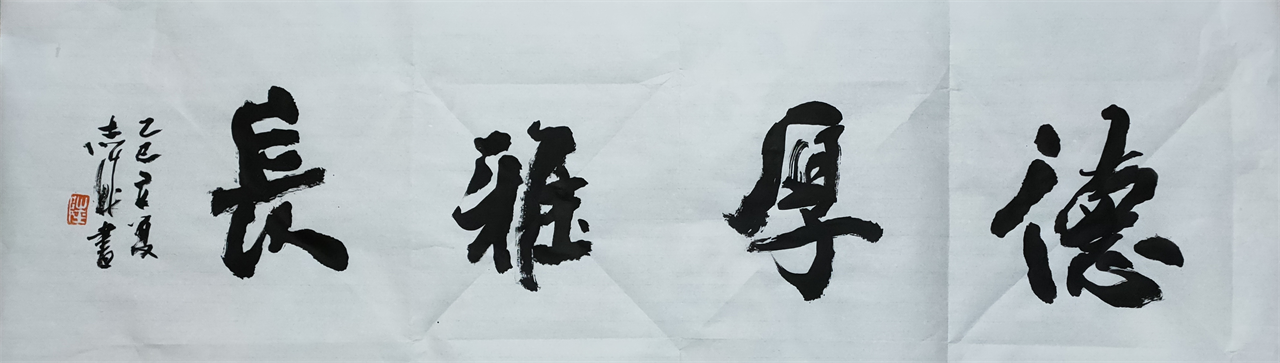 德厚雅長
乙巳 夏
志 書